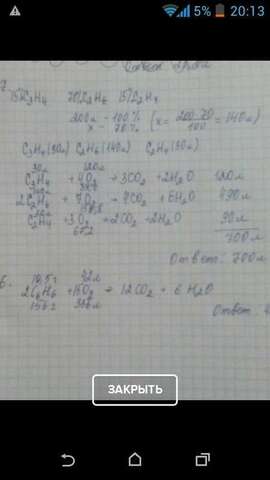 5% 20:13
15% C3H4 70% C2H6 15% C2H4
200л - 100%
x - 70% (x = 200·70/100 = 140л)
C3H4 (30л) C2H6 (140л) C2H4 (30л)
30л 120л
C3H4 + 4O2 → 3CO2 + 2H2O 120л
2C2H6 + 7O2 → 4CO2 + 6H2O 490л
C2H4 + 3O2 → 2CO2 + 2H2O 90л
67,2
700л
Ответ: 700л
6.
2C6H6 + 15O2 → 12CO2 + 6H2O
156г 336л Ответ:
ЗАКРЫТЬ